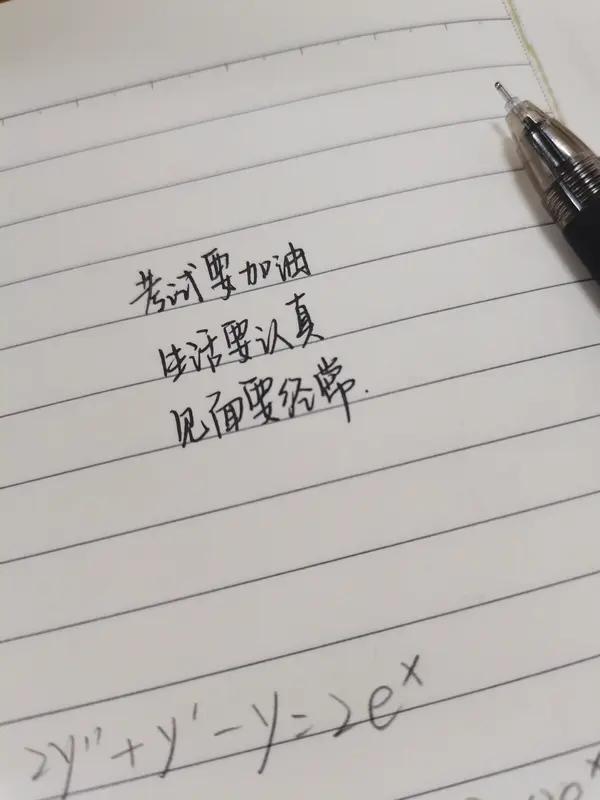 考试要加油
生活要认真
见面要经常.
2y''+y'-y=2e^x